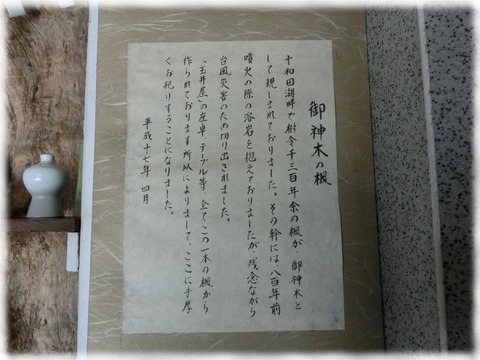 御神木の楓
十和田湖畔で樹令千三百年余の楓が、御神木と
して親しまれておりました。その幹には、八百年前
噴火の際の溶岩を抱えておりましたが、残念ながら
台風災害のため切り出されました。
「玉井屋」の座卓、テーブル等、全てこの一本の楓から
作られております所以によりまして、ここに手厚
くお祀りすることになりました。
平成十七年 四月